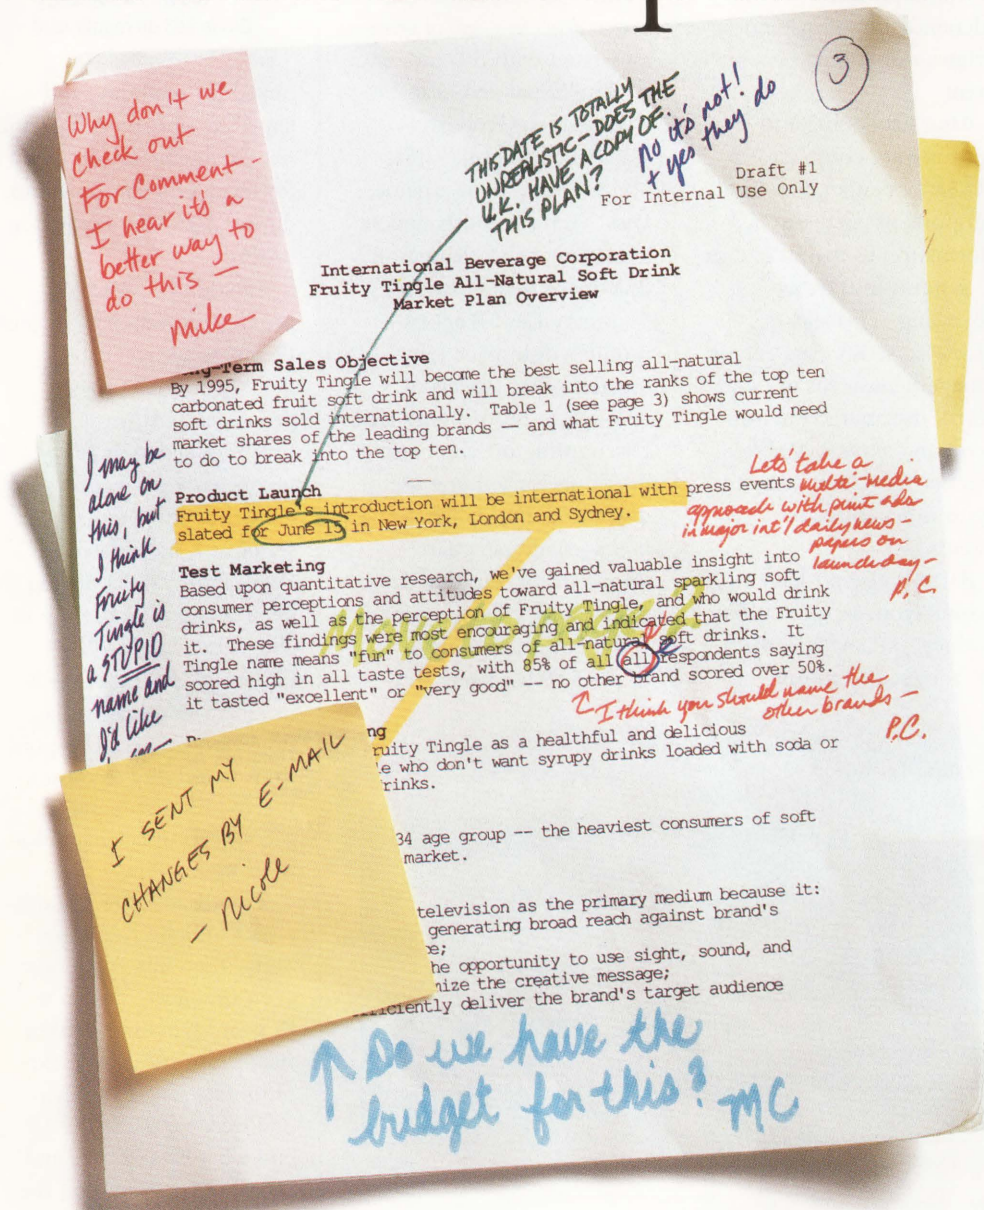 Why don't we
check out
For Comment -
I hear it's a
better way to
do this -
Mike
THIS DATE IS TOTALLY
UNREALISTIC - DOES THE
U.K. HAVE A COPY OF
THIS PLAN?
no it's not!
+ yes they do
3
Draft #1
For Internal Use Only
International Beverage Corporation
Fruity Tingle All-Natural Soft Drink
Market Plan Overview
-Term Sales Objective
By 1995, Fruity Tingle will become the best selling all-natural
carbonated fruit soft drink and will break into the ranks of the top ten
soft drinks sold internationally. Table 1 (see page 3) shows current
market shares of the leading brands -- and what Fruity Tingle would need
to do to break into the top ten.
I may be
alone on
this, but
I think
Fruity
Tingle is
a STUPID
name and
I'd like
Product Launch
Fruity Tingle's introduction will be international with press events
slated for June 15 in New York, London and Sydney.
Let's take a
multi-media
approach with print ads
in major int'l daily news-
papers on
launch day -
P.C.
Test Marketing
Based upon quantitative research, we've gained valuable insight into
consumer perceptions and attitudes toward all-natural sparkling soft
drinks, as well as the perception of Fruity Tingle, and who would drink
it. These findings were most encouraging and indicated that the Fruity
Tingle name means "fun" to consumers of all-natural soft drinks. It
scored high in all taste tests, with 85% of all all respondents saying
it tasted "excellent" or "very good" -- no other brand scored over 50%.
Move to page 2
↑ I think you should name the
other brands -
P.C.
ng
ruity Tingle as a healthful and delicious
e who don't want syrupy drinks loaded with soda or
rinks.
I SENT MY
CHANGES BY E-MAIL
- Nicole
34 age group -- the heaviest consumers of soft
market.
television as the primary medium because it:
generating broad reach against brand's
e;
he opportunity to use sight, sound, and
nize the creative message;
ficiently deliver the brand's target audience
↑ Do we have the
budget for this? MC